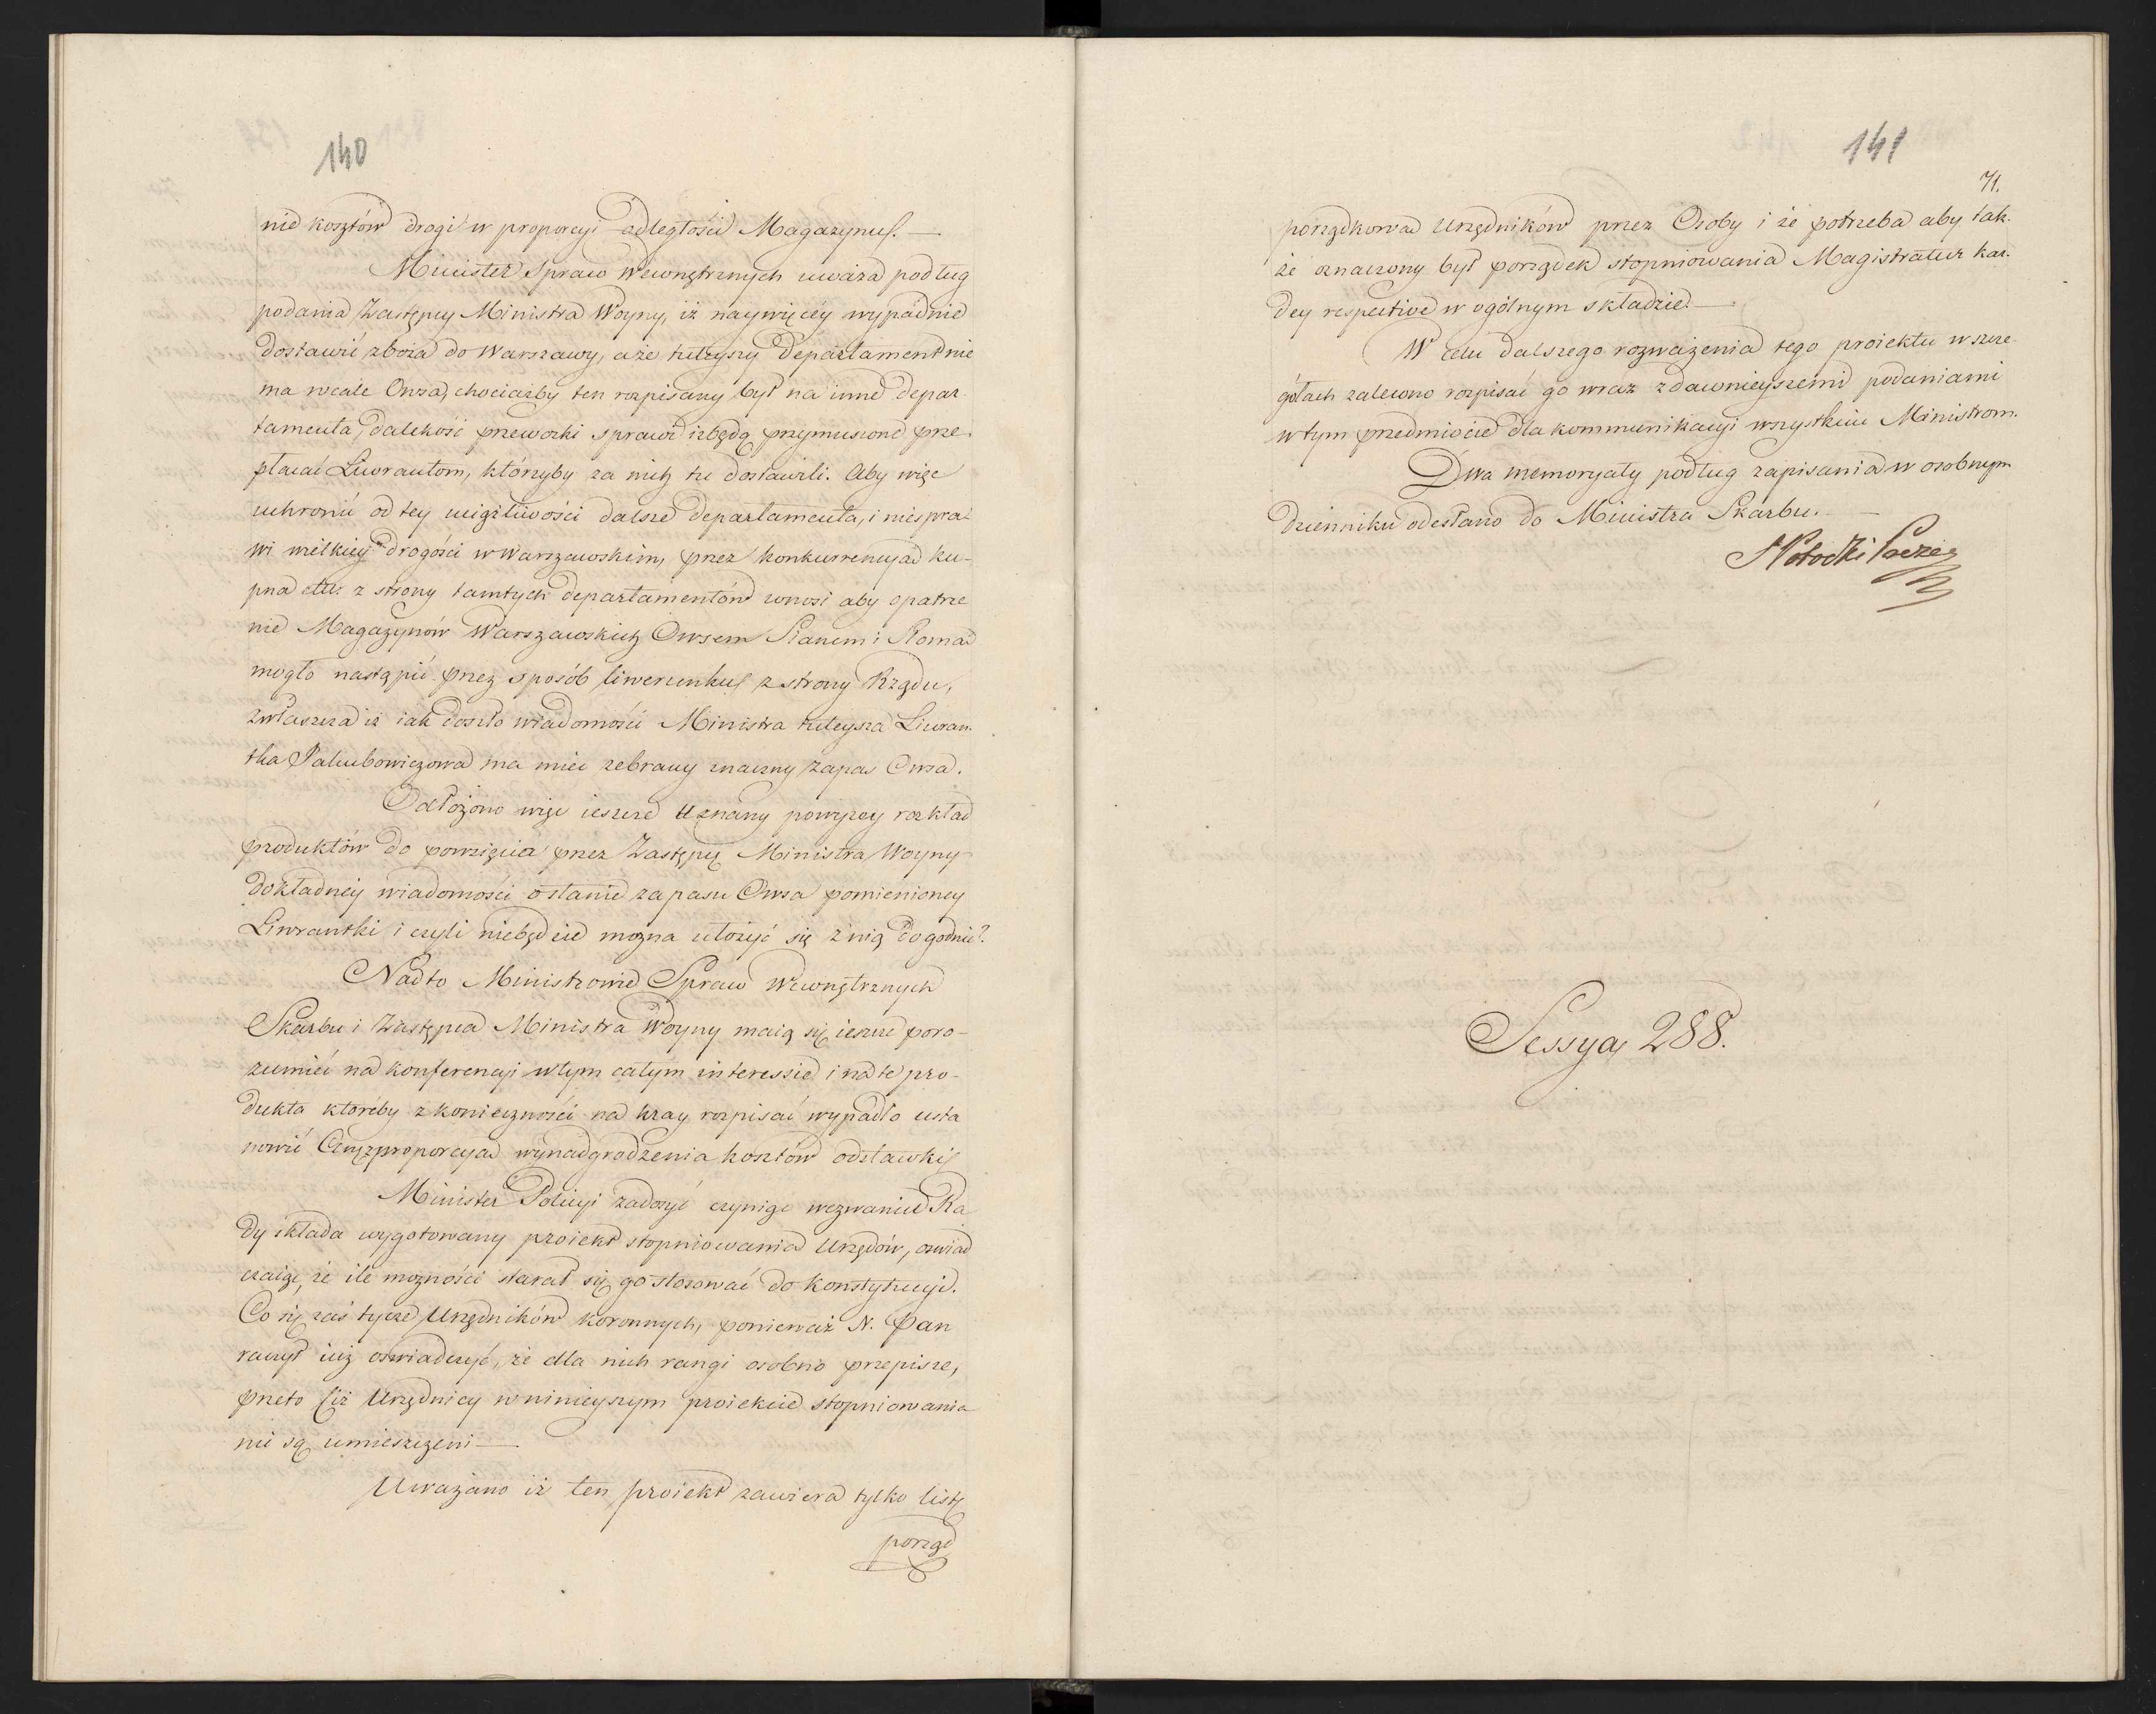 140
nie kosztów drogi w proporcyi odległości Magazynu. —
Minister Spraw Wewnętrznych uważa podług
podania Zastępcy Ministra Woyny, iż naywięcéy wypadnie
dostawić zboża do Warszawy, a że tuteyszy Departament nie
ma wcale Owsa, chociażby ten rozpisany był na inne depar-
tamenta, dalekość przewozki sprawi iż będą przymuszone prze-
płacać Liwrantom, którzyby za nich tu dostawili. Aby więc
uchronić od tey uciążliwości dalsze departamenta, i nie spra-
wić wielkiey drogości w Warszawskim, przez konkurrencyą ku-
pna tu z strony tamtych departamentów wnosi aby opatrze
nie Magazynów Warszawskich Owsem Sianem i Słomą
mogło nastąpić przez sposób liwerunku z strony Rządu,
zwłaszcza iż iak doszło wiadomości Ministra tuteysza Liwran-
tka Jakubowiczowa ma mieć zebrany znaczny zapas Owsa.
Odłożono więc ieszcze uznany powyżey rozkład
produktów do powzięcia przez Zastępcę Ministra Woyny
dokładney wiadomości o stanie zapasu Owsa pomienioney
Liwrantki i czyli niebędzie można ułożyć się z nią dogodnie?
Nadto Ministrowie Spraw Wewnętrznych
Skarbu i Zastępca Ministra Woyny maią się ieszcze poro-
zumieć na konferencyi w tym całym interessie i na te pro-
dukta któreby z konieczności na kray rozpisać wypadło usta
nowić proporcyą wynadgrodzenia kosztów odstawki
Minister Policyi zadosyć czyniąc wezwaniu Ra
dy składa wygotowany proiekt stopniowania Urzędów, oświad
czaiąc, że ile możności starał się go stosować do Konstytucyi.
Co się zaś tycze Urzędników koronnych, ponieważ N. Pan
raczył iuż oświadczyć, że dla nich rangi osobno przepisze,
przeto ciż Urzędnicy w ninieyszym proiekcie stopniowania
nie są umieszczeni —
Uważano iż ten proiekt zawiera tylko listę
porząd
141
71.
porządkowa Urzędników przez Osoby i że potrzeba aby tak-
że oznaczony był porządek stopniowania Magistratur każ-
dey respective w ogólnym składzie. —
W celu dalszego rozważenia tego proiektu w szcze-
gółach zalecono rozpisać go wraz z dawnieyszemi podaniami
w tym przedmiocie dla kommunikacyi wszystkim Ministrom.
Dwa memoryały podług zapisania w osobnym
dzienniku odesłano do Ministra Skarbu. —
S Potocki Prezes
Sessya 288.